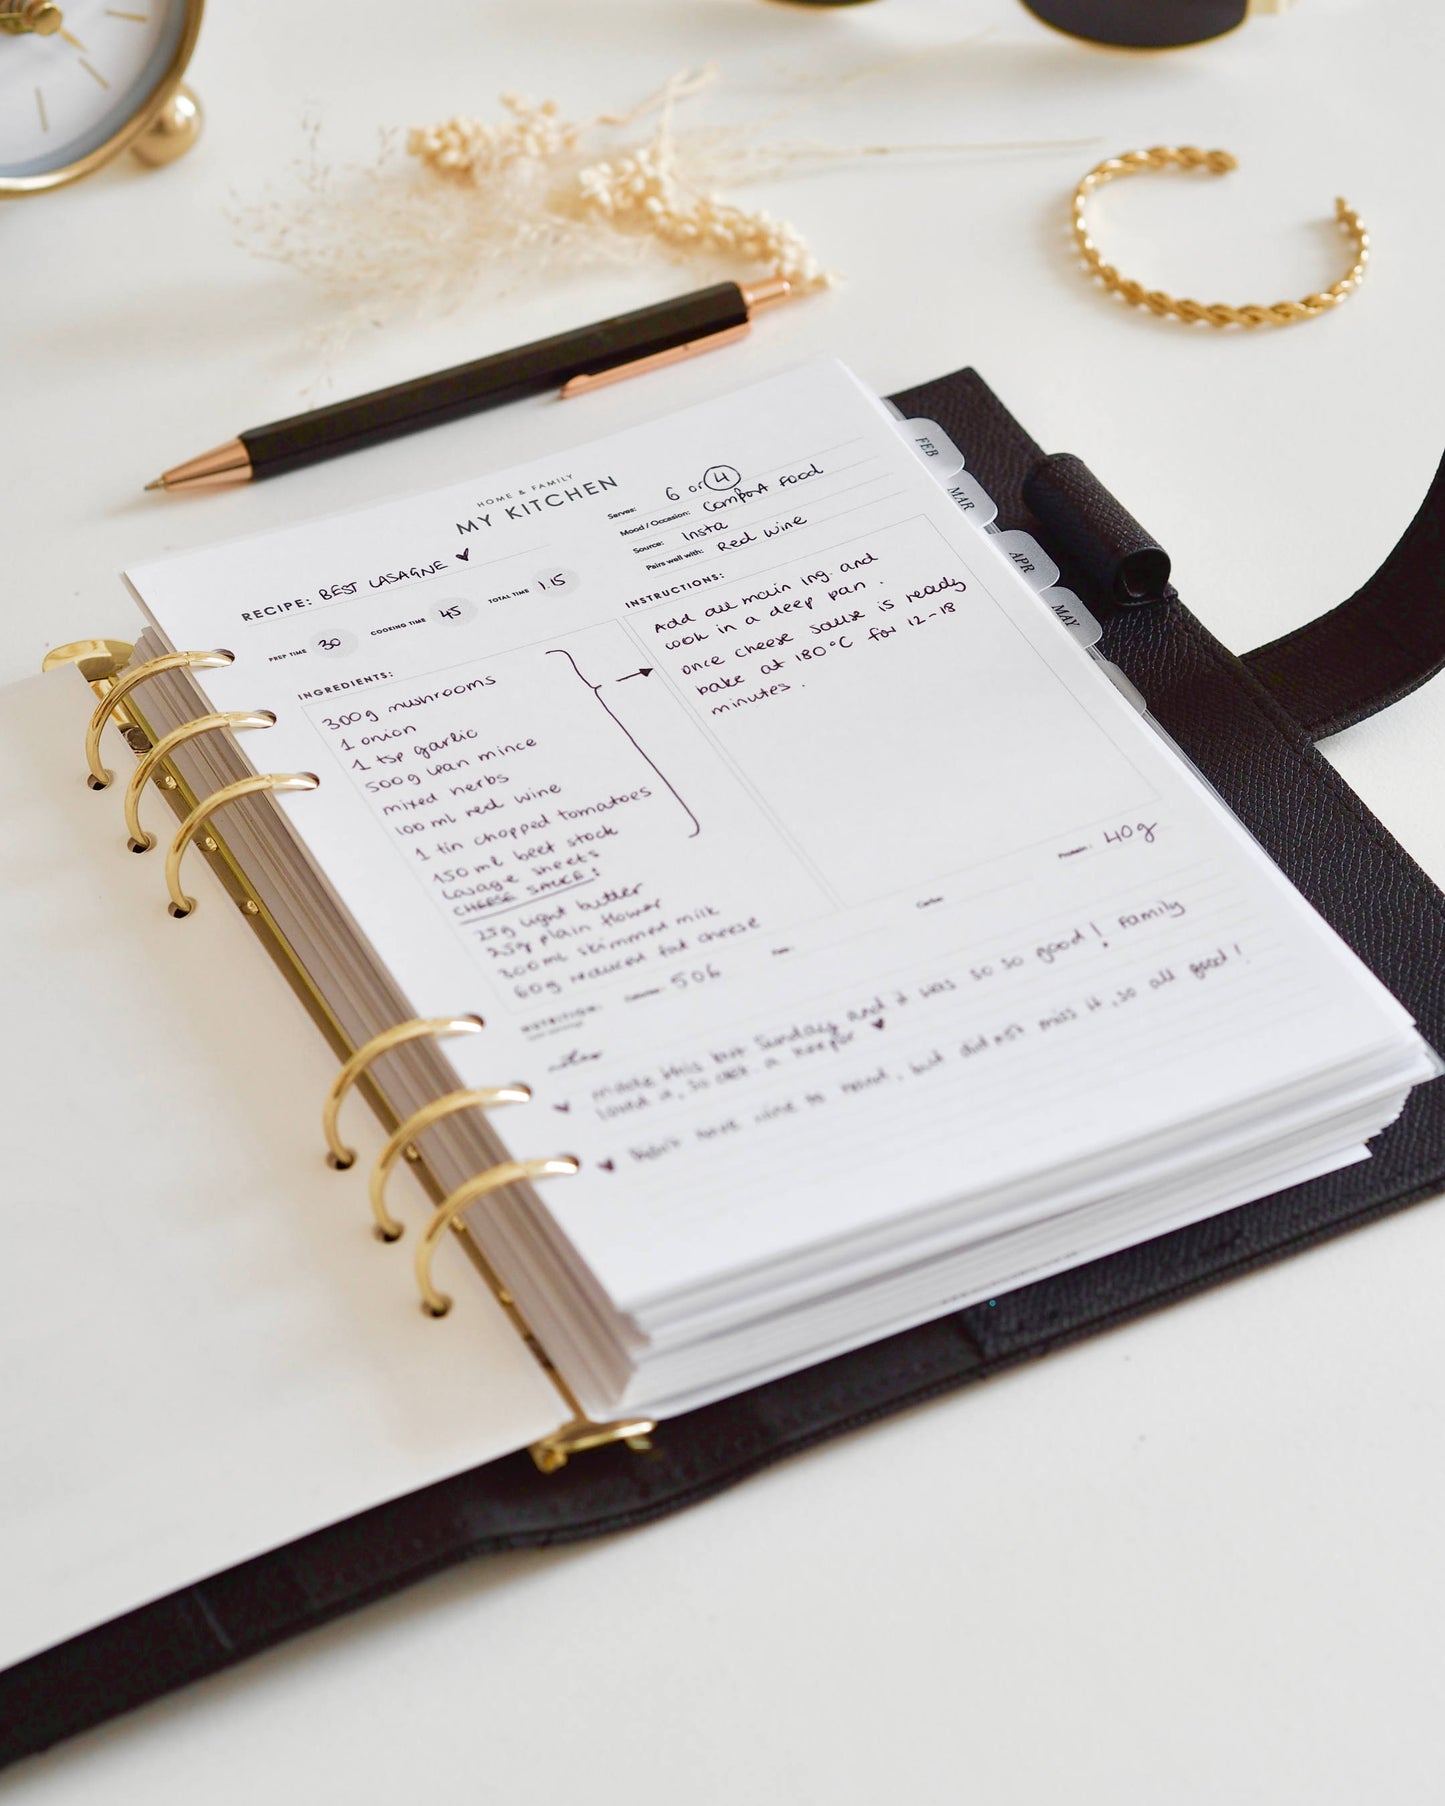 HOME & FAMILY
MY KITCHEN
RECIPE: BEST LASAGNE
Serves: 6 or 4
Mood / Occasion: Comfort FOOD
Source: Insta
Pairs well with: Red wine
PREP TIME 30 COOKING TIME 45 TOTAL TIME 1.15
INGREDIENTS:
300g mushrooms
1 onion
1 tsp garlic
500g lean mince
mixed herbs
100 ml red wine
1 tin chopped tomatoes
150 ml beef stock
Lasagne sheets
CHEESE SAUCE:
25g light butter
25g plain flower
300ml skimmed milk
60g reduced fat cheese
INSTRUCTIONS:
Add all main ing. and
cook in a deep pan.
once cheese sause is ready
bake at 180°C for 12-18
minutes.
NUTRITION: Calories: 506 Carbs: Protein: 40g
notes
made this last Sunday and it was so so good! Family
loved it, so a keeper
Didn't have wine to hand, but did not miss it, so all good!
FEB
MAR
APR
MAY